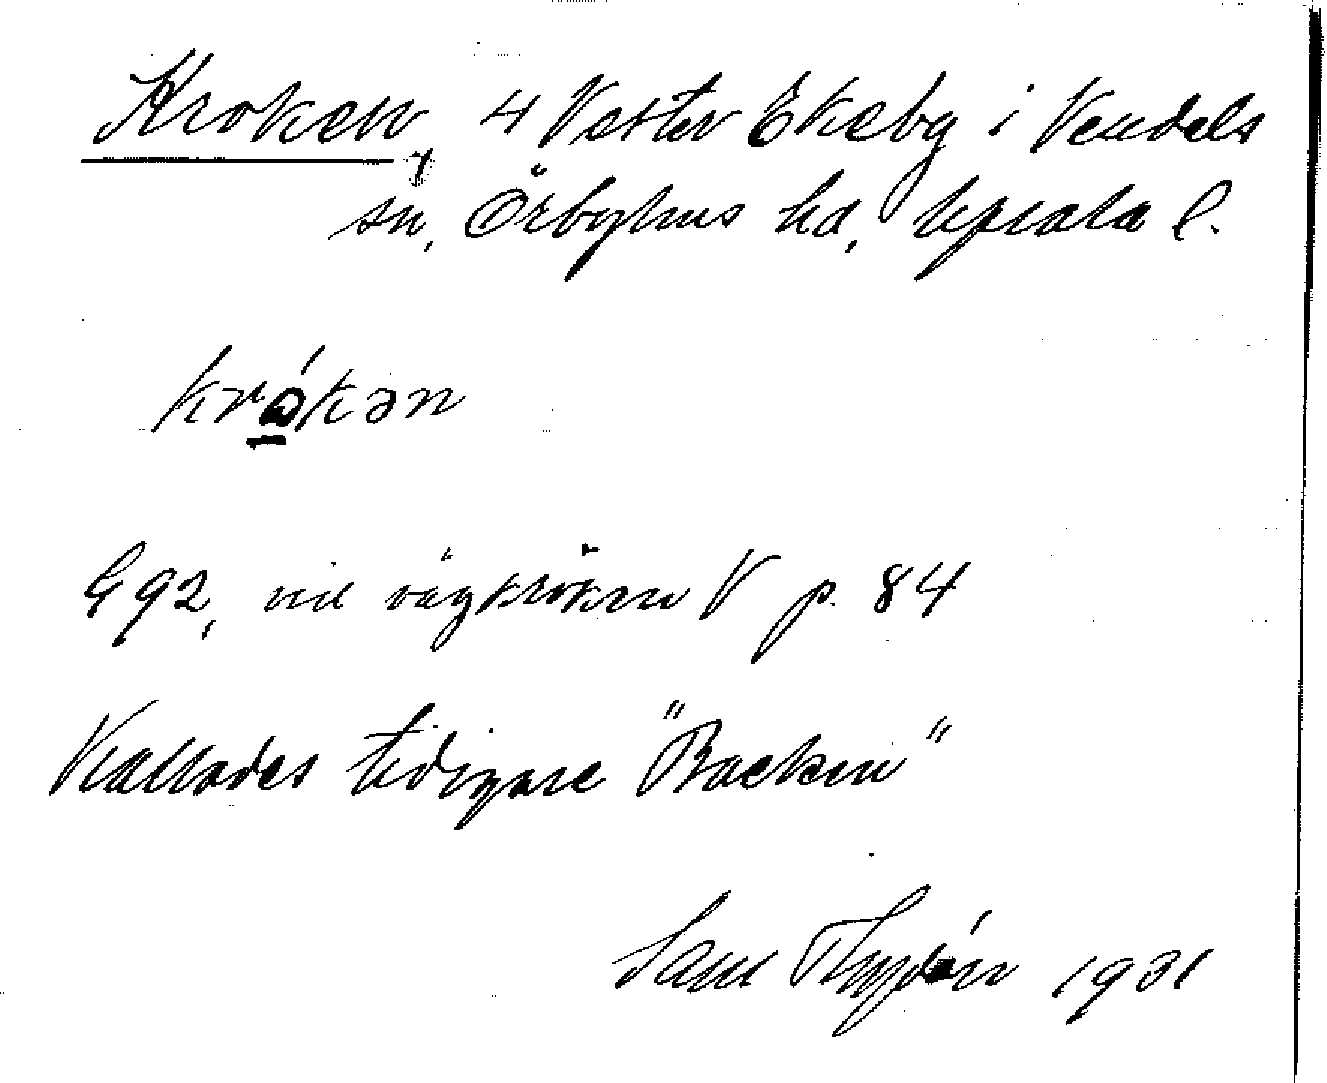 Kroken, 4 Vester Ekeby i Vendels
sn, Örbyhus hd, Upsala l.
krókən
G 92, vid vägkröken V p. 84
Kallades tidigare "Backen"
Sam 1931